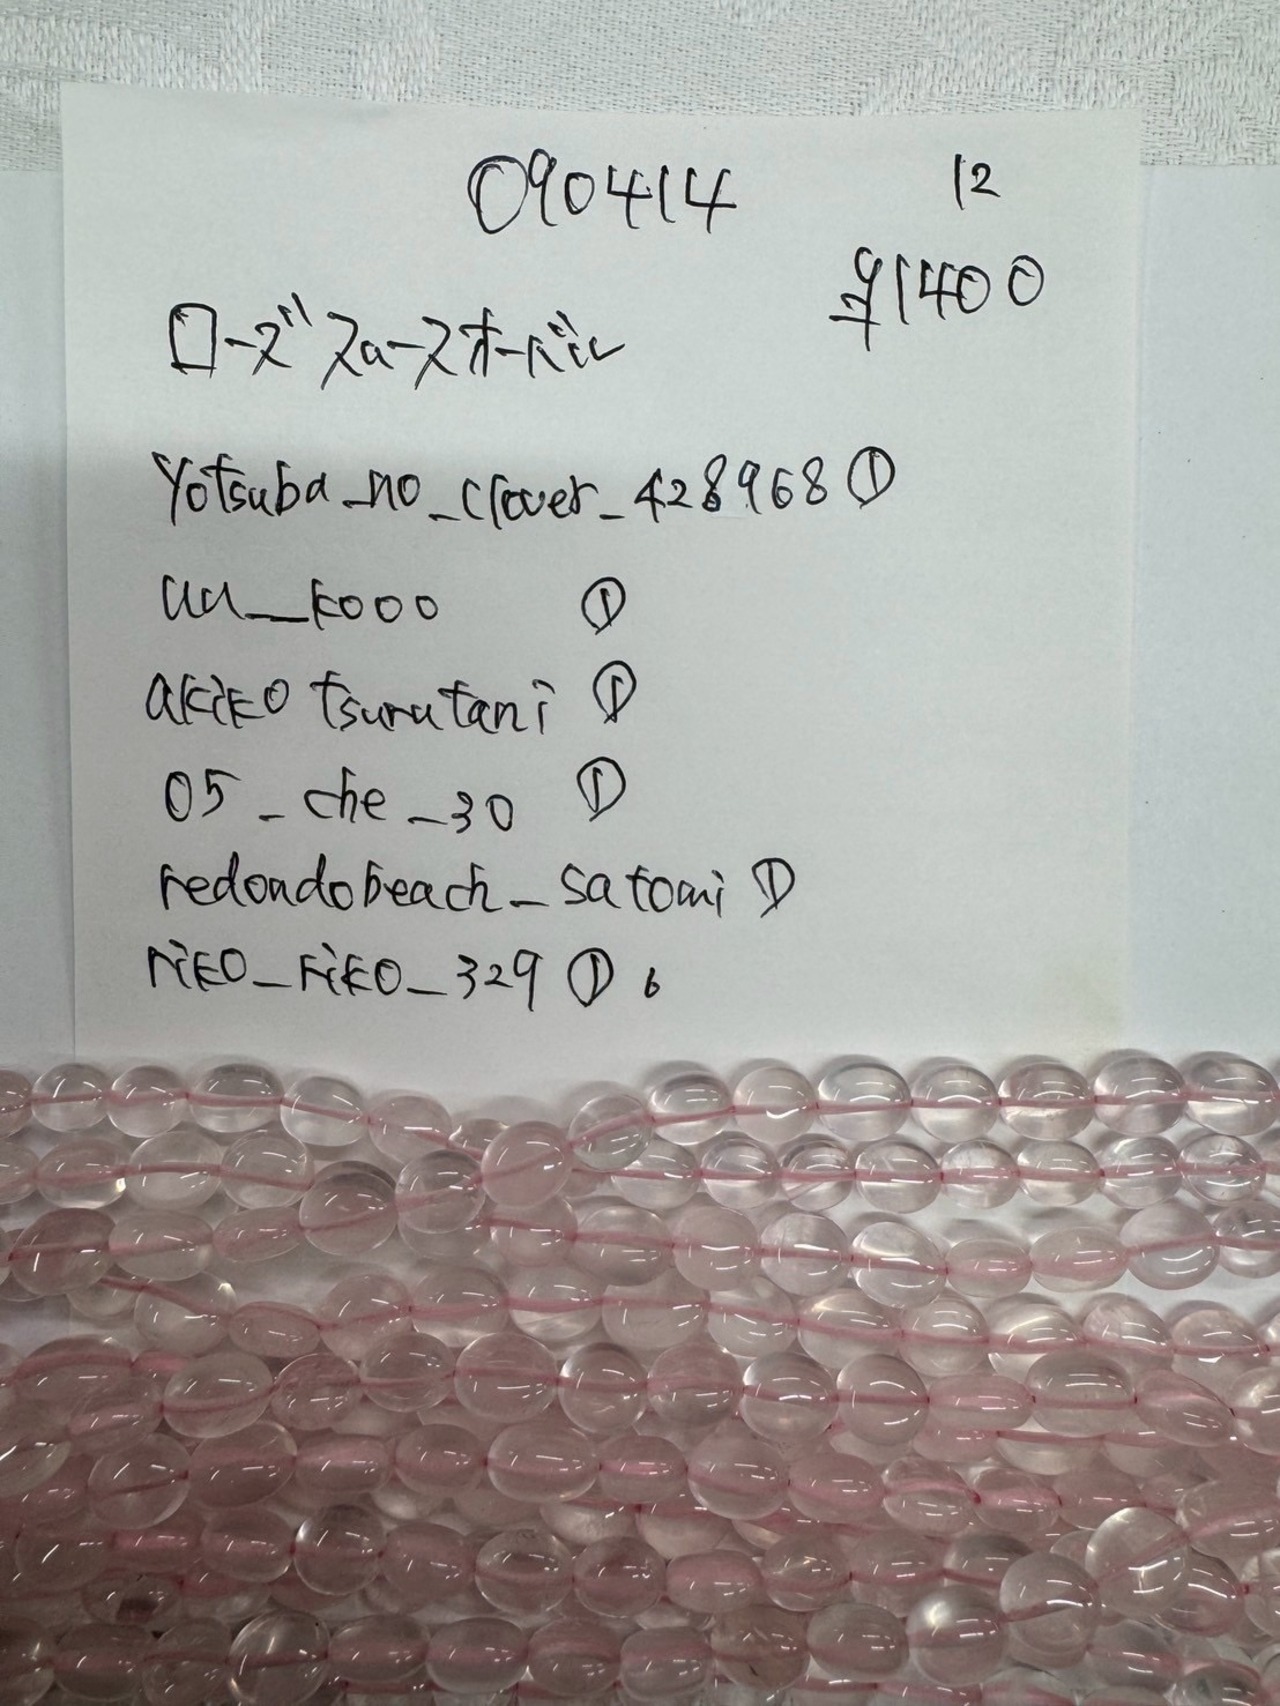 090414
12
¥1400
ローズスムースオーバル
yotsuba_no_clover_428968 ①
uu__kooo ①
akiko tsurutani ①
05_che_30 ①
redondobeach_satomi ①
riko_riko_329 ① 6